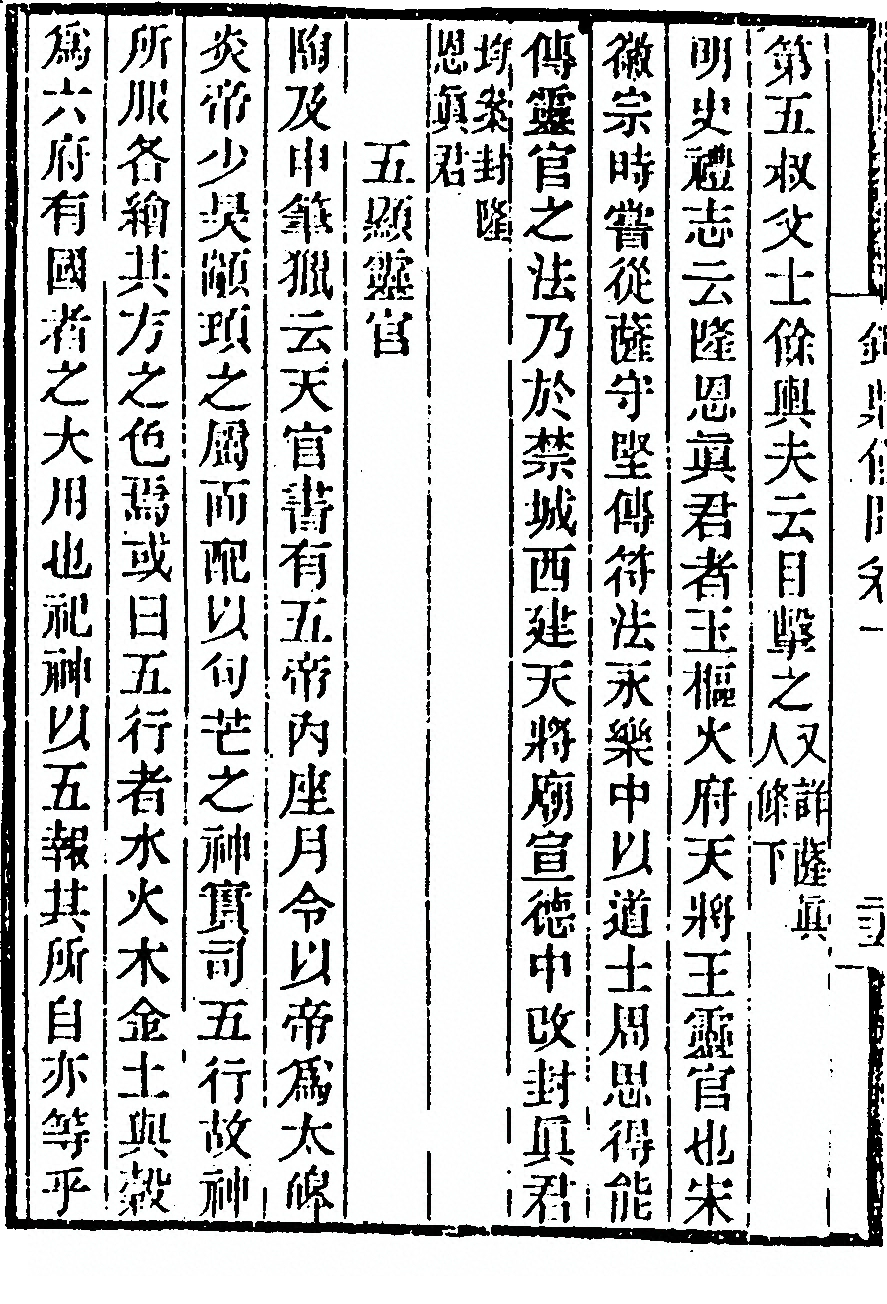 鑄鼎餘聞卷一
第五叔父士餘輿夫云目擊之又詳薩眞
人條下
明史禮志云隆恩眞君者玉樞火府天將王靈官也宋
徽宗時嘗從薩守堅傳符法永樂中以道士周思得能
傳靈官之法乃於禁城西建天將廟宣德中改封眞君
均案封隆
恩眞君
五顯靈官
陶及申筆獵云天官書有五帝內座月令以帝爲太皞
炎帝少昊顓頊之屬而配以句芒之神實司五行故神
所服各繪其方之色焉或曰五行者水火木金土與穀
爲六府有國者之大用也祀神以五報其所自亦等乎